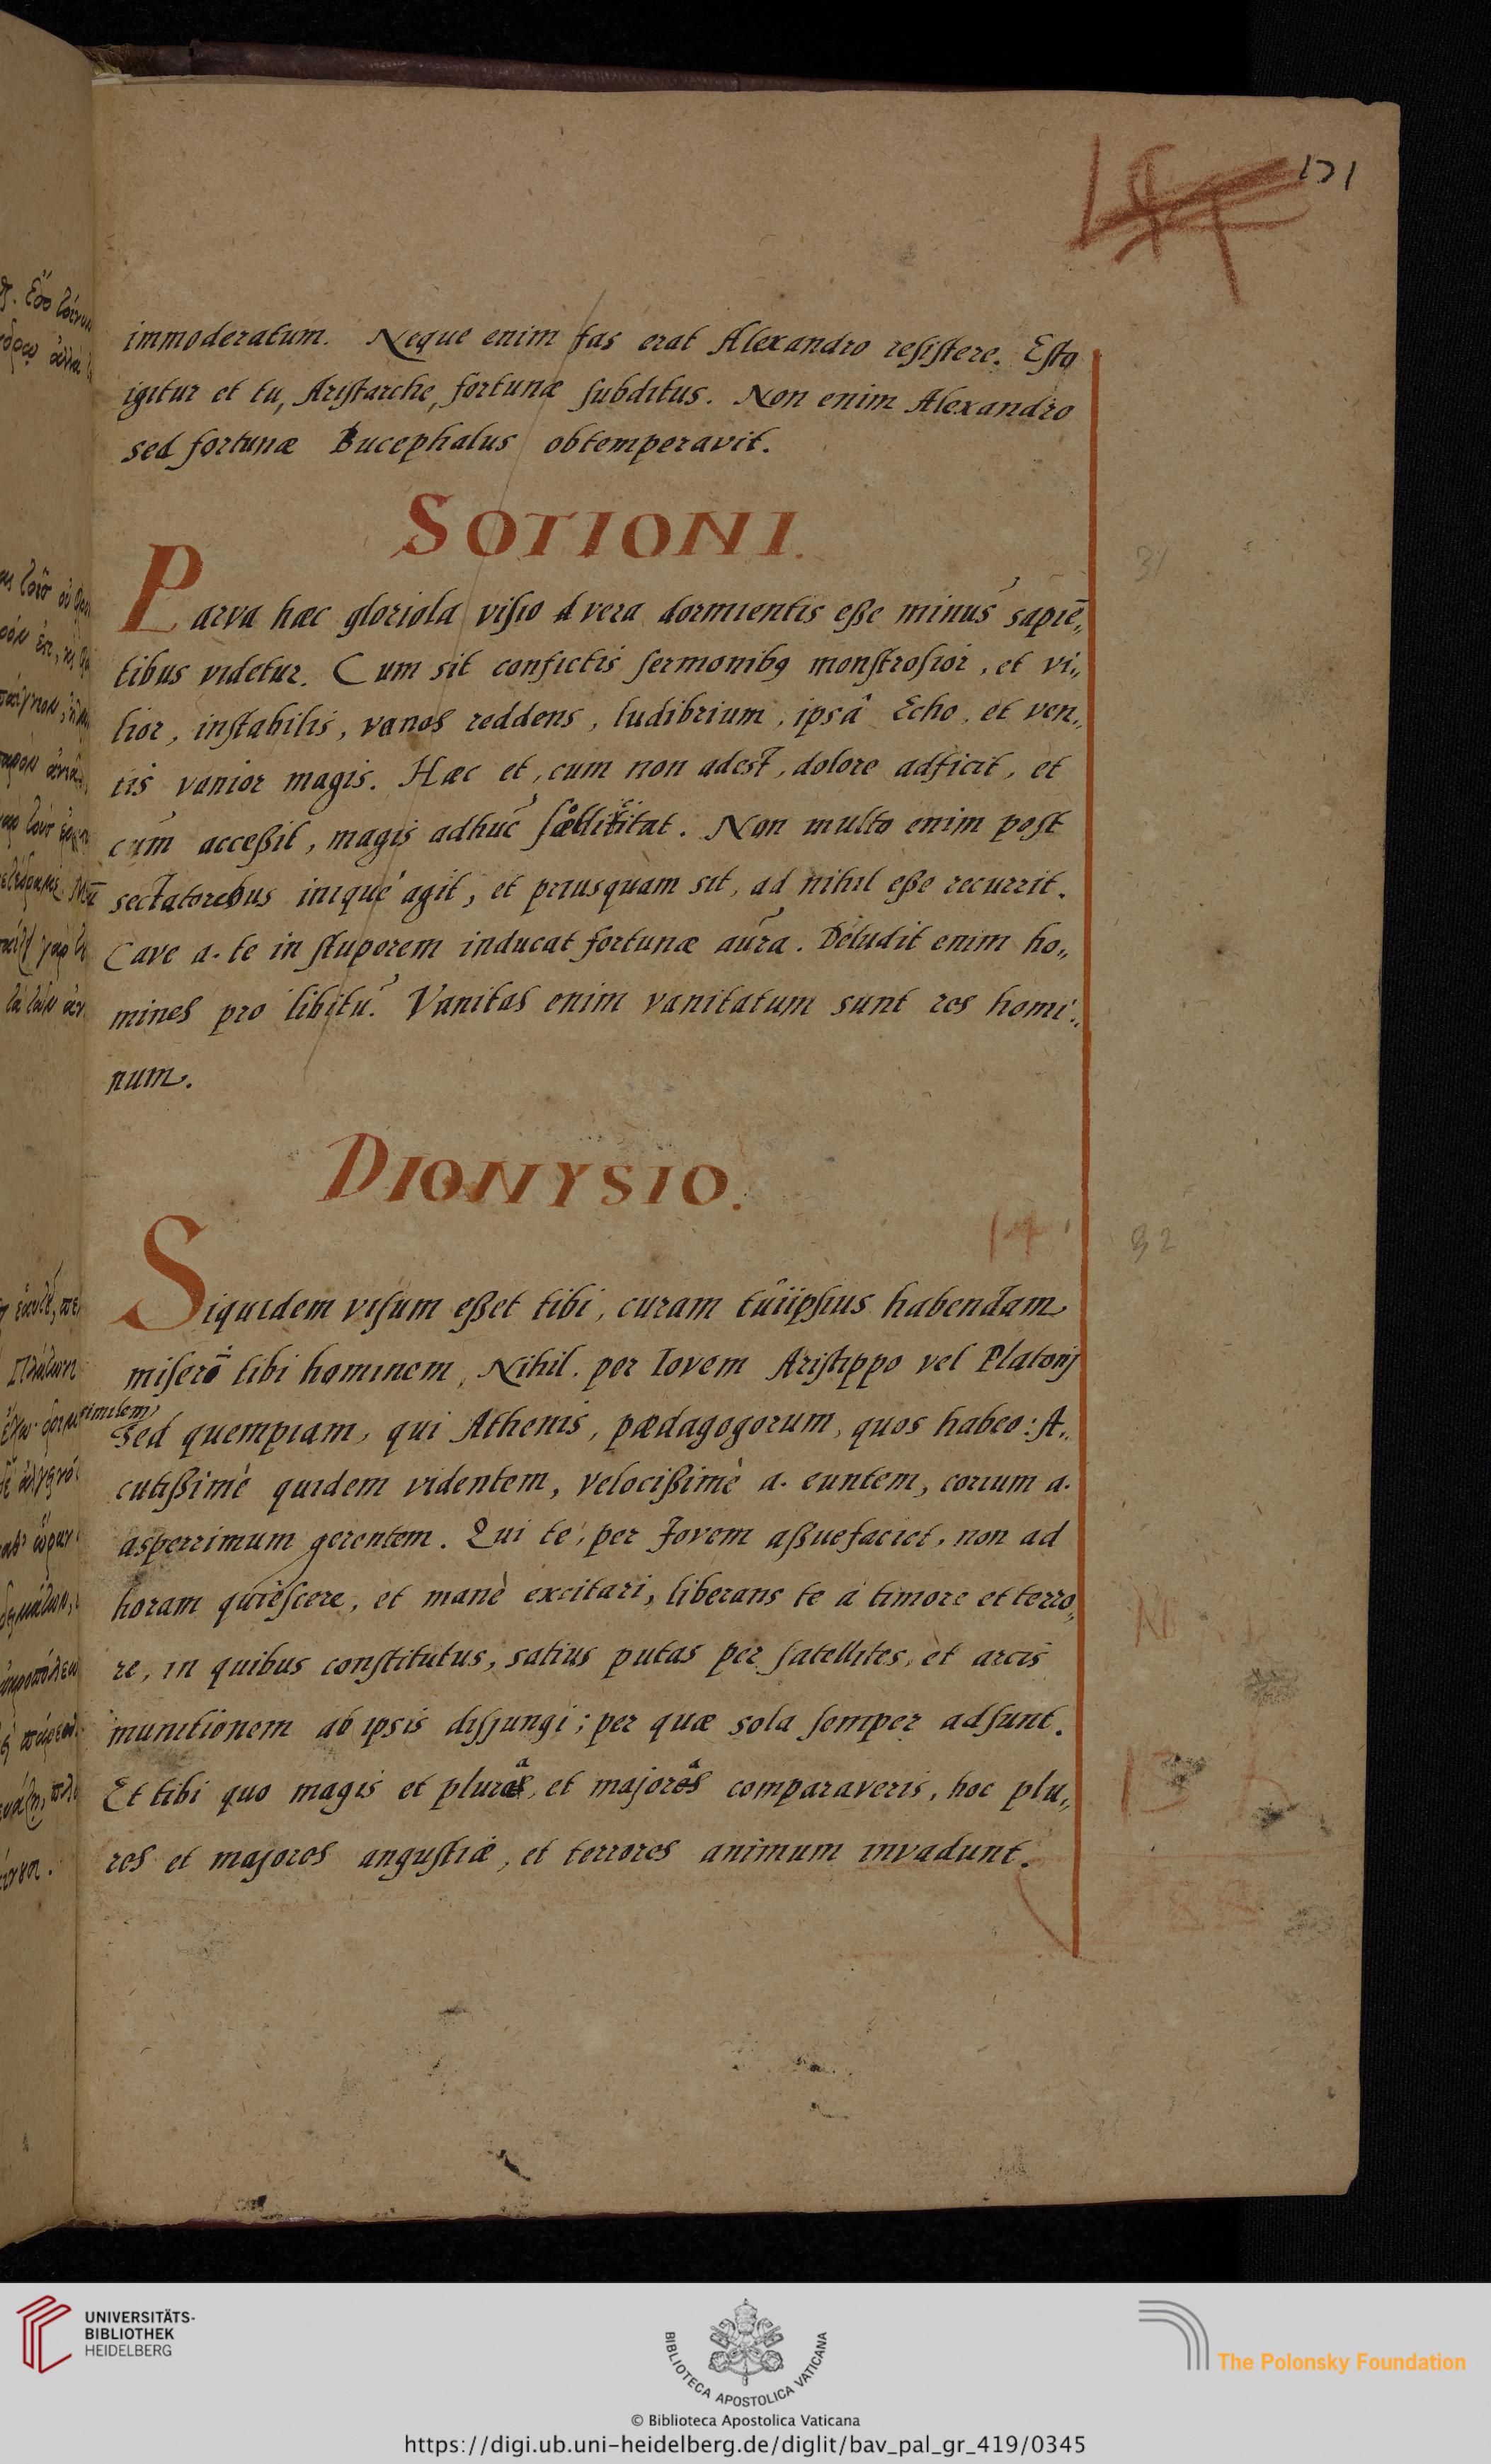 171
immoderatum. Neque enim fas erat Alexandro resistere. Esto
igitur et tu, Aristarche, fortunæ subditus. Non enim Alexandro
sed fortunæ Bucephalus obtemperavit.
SOTIONI.
31
Parva hæc gloriola visio vera dormientis eße minus sapiē„
tibus videtur. Cum sit confictis sermonibꝯ monstrosior, et vi„
lior, instabilis, vanos reddens, ludibrium, ipsâ Echo, et ven„
tis vanior magis. Hæc et, cum non adest, dolore adficit, et
cum acceßit, magis adhuc . Non multo enim post
sectatorebus inique agit, et priusquam sit, ad nihil eße recurrit.
Cave a. te in stuporem inducat fortunæ aura. Deludit enim ho„
mines pro libitu. Vanitas enim vanitatum sunt res homi„
num.
DIONYSIO.
14
32
Siquidem visum eßet tibi, curam tuiipsius habendam
miserō tibi hominem, Nihil. per Iovem Aristippo vel Platonj
similem,
Sed quempiam, qui Athenis, pædagogorum, quos habeo: A„
cutißimè quidem videntem, velocißimè a. euntem, corium a.
asperrimum gerentem. Qui te, per Jovem aßuefaciet, non ad
horam quiescere, et manè excitari, liberans te à timore et terro„
re, in quibus constitutus, satius putas per satellites, et arcis
munitionem ab ipsis disjungi; per quæ sola semper adsunt.
Et tibi quo magis et plura, et majora comparaveris, hoc plu„
res et majores angustiæ, et terrores animum invadunt.
UNIVERSITÄTS-
BIBLIOTHEK
HEIDELBERG
BIBLIOTECA APOSTOLICA VATICANA
The Polonsky Foundation
© Biblioteca Apostolica Vaticana
https://digi.ub.uni-heidelberg.de/diglit/bav_pal_gr_419/0345